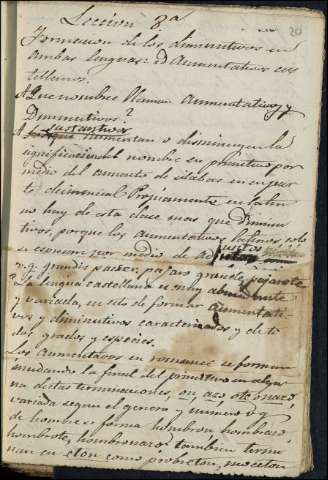 Leccion 8.a
20
Formacion de los diminutivos en
ambas lenguas: id Aumentativos cas
tellanos.
Que nombres llaman Aumentativos y
Diminutivos?
sustantivos
aumentan o disminuyen la
significacion del nombre su primitivo por
medio del aumento de silabas en su par
te Propiamente en latin
no hay de esta clase mas que Diminu
tivos, porque los aumentativos latinos solo
se espresan por medio de
v.g. grandis passer, pajaro grande pajarote
La lengua castellana es muy abundante
y variada, en esto de formar aumentati
vos y diminutivos caracterizados y de to
dos grados y especies.
Los Aumentativos en romance se forman
mudando la final del primitivo en algu
na destas terminaciones, en azo ote onazo,
variada segun el genero y número v.g.
de hombre se forma hombron hombrazo,
hombrote, hombronazo: tambien termi
nan en eton como pobreton, moceton